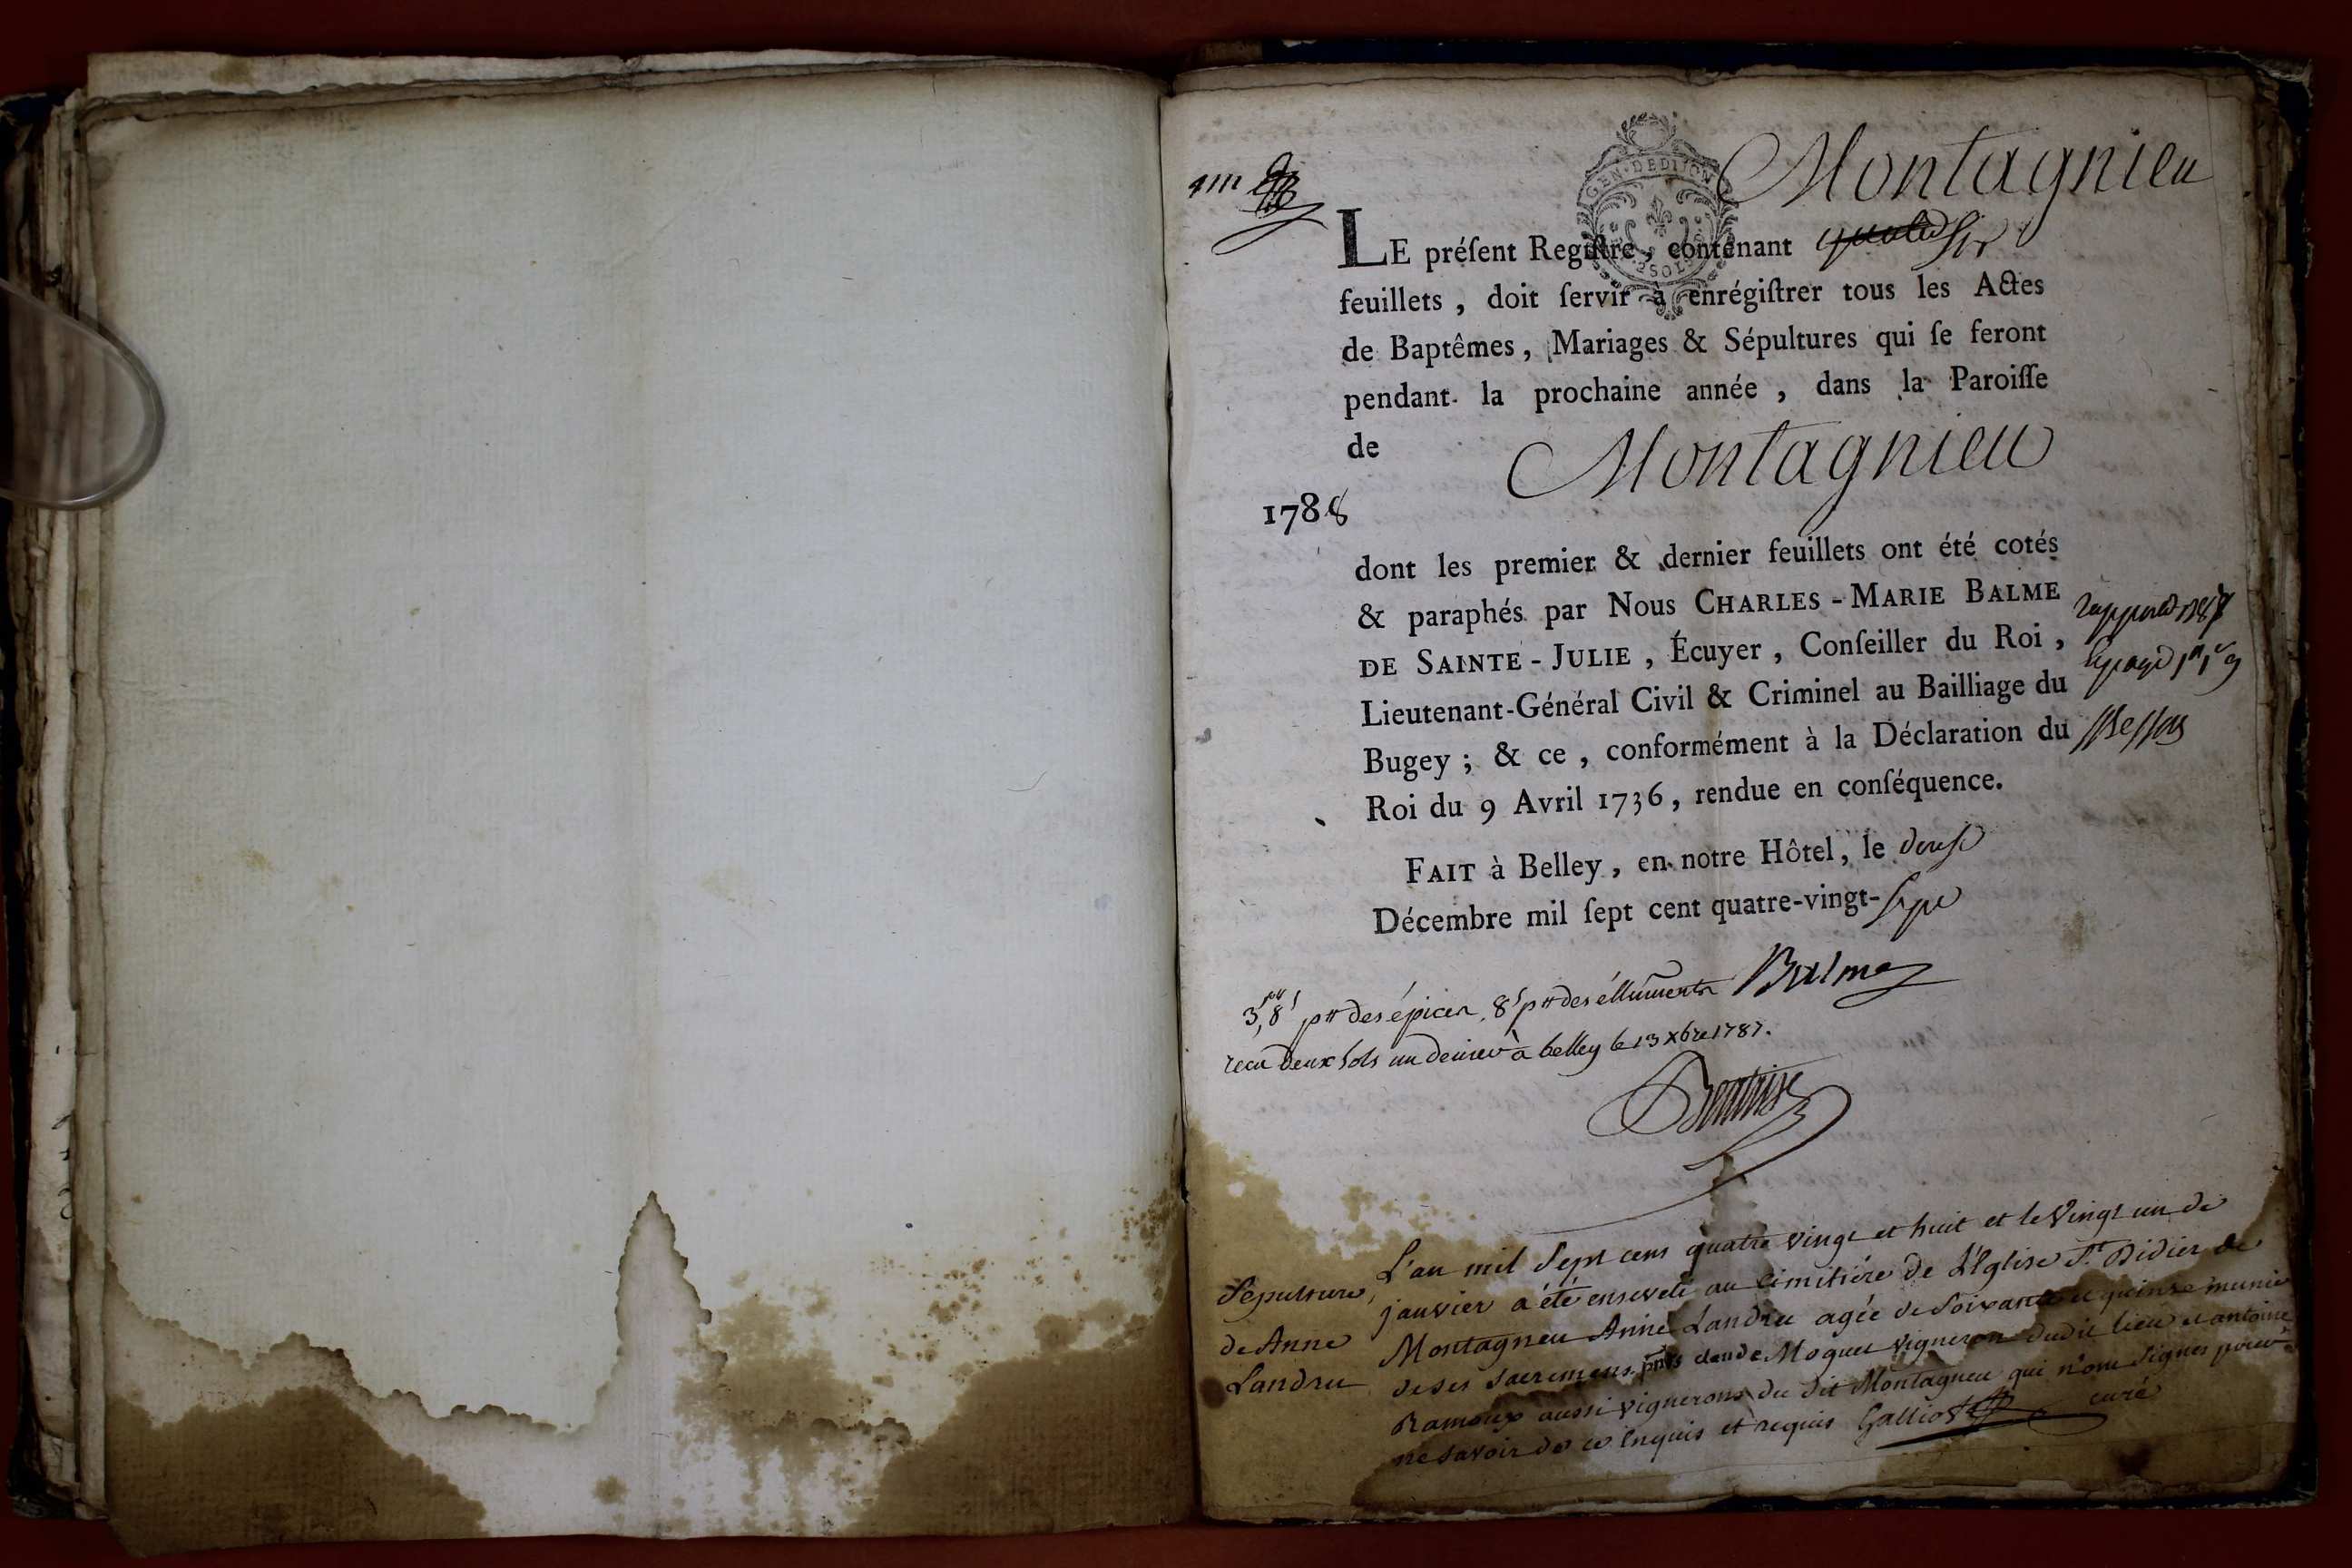 Montagnieu
GEN·DE DIJON
LE préſent Regiſtre, contenant six
feuillets, doit ſervir à enrégiſtrer tous les Actes
de Baptêmes, Mariages & Sépultures qui ſe feront
pendant la prochaine année, dans la Paroiſſe
de Montagnieu
1788
dont les premier & dernier feuillets ont été cotés
& paraphés par Nous CHARLES-MARIE BALME
DE SAINTE-JULIE, Écuyer, Conſeiller du Roi,
Lieutenant-Général Civil & Criminel au Bailliage du
Bugey; & ce, conformément à la Déclaration du
Roi du 9 Avril 1736, rendue en conſéquence.
FAIT à Belley, en notre Hôtel, le douse
Décembre mil ſept cent quatre-vingt-sept
Balme
3 8s pr des épices, 8s pr des
recu deux sols un denier à belley le 13 xbre 1787.
Sepulture
de Anne
Landru
L'an mil sept cens quatre vingt et huit et le vingt un de
janvier a été enseveli au cimitiére de L'Eglise St Didier de
Montagneu Anne Landru agée de soixante et quinse munie
de ses sacremens. pnts claude Moquet vigneron dudit lieu et antoine
Ramoux aussi vignerons du dit Montagneu qui n'ont signes pour
ne savoir de ce enquis et requis Galliot curé